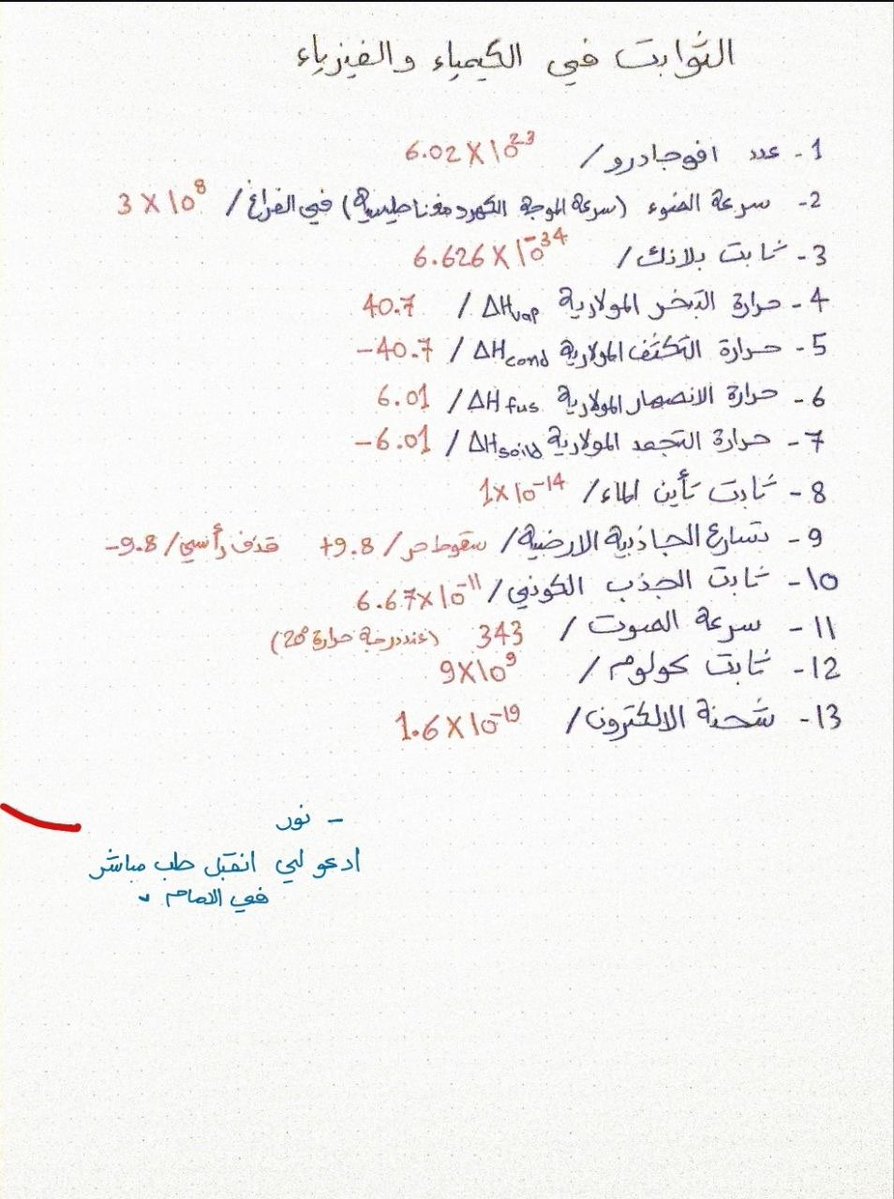 الثوابت في الكيمياء والفيزياء
1- عدد افوجادرو / 6.02 X 10²³
2- سرعة الضوء (سرعة الموجة الكهرومغناطيسية) في الفراغ / 3 X 10⁸
3- ثابت بلانك / 6.626 X 10⁻³⁴
4- حرارة التبخر المولارية ΔHvap / 40.7
5- حرارة التكثف المولارية ΔHcond / -40.7
6- حرارة الانصهار المولارية ΔHfus / 6.01
7- حرارة التجمد المولارية ΔHsoild / -6.01
8- ثابت تأين الماء / 1x10⁻¹⁴
9- تسارع الجاذبية الارضية / سقوط حر / +9.8 قذف رأسي / -9.8
10- ثابت الجذب الكوني / 6.67x10⁻¹¹
11- سرعة الصوت / 343 (عند درجة حرارة 20°)
12- ثابت كولوم / 9X10⁹
13- شحنة الالكترون / 1.6 X 10⁻¹⁹
- نور
ادعو لي انقبل طب مباشر
في الامام